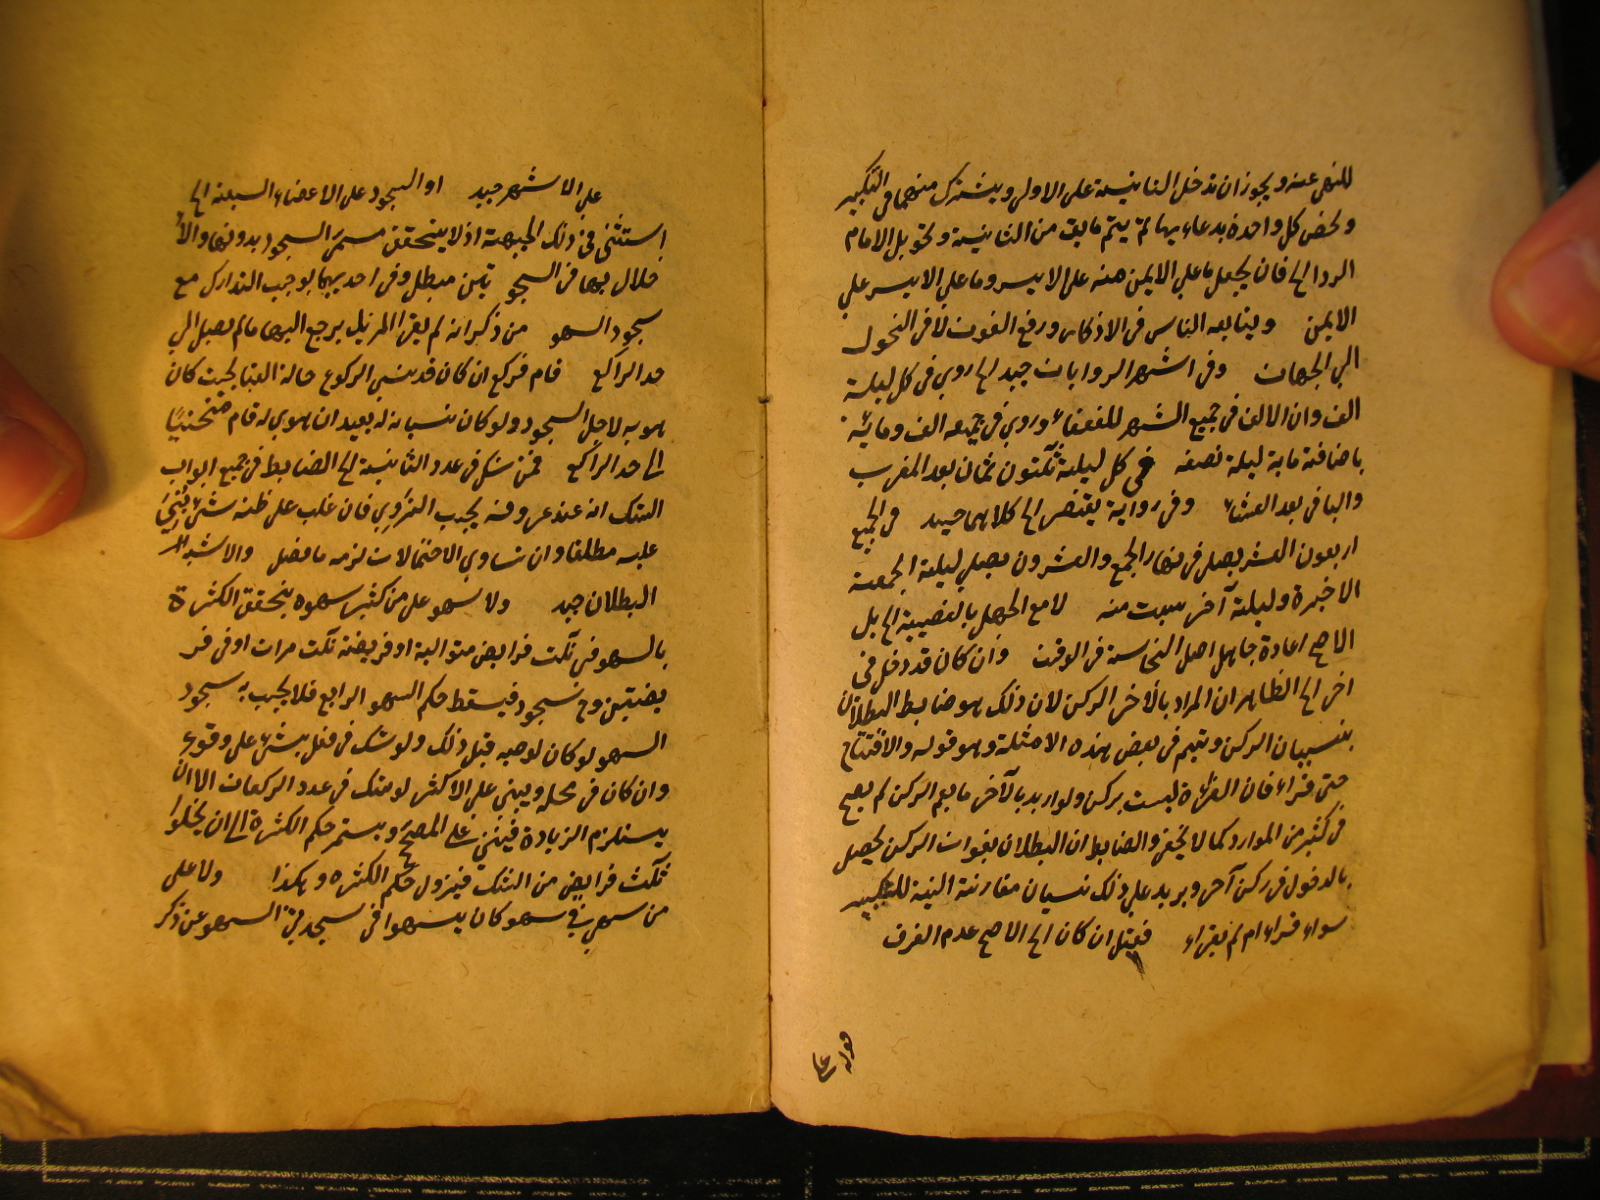 للنهي عنه ويجوز ان تدخل الثانية على الاولى ويشترك منهما في التكبير
ويخص كل واحدة بدعاء بها ثم يتم ما بقي من الثانية وتحويل الامام
الردا الخ فان يجعل ما على الايمن منه على الايسر وما على الايسر على
الايمن ويتابعه الناس في الاذكار ورفع الصوت لا في التحول
الى الجهات وفي اشهر الروايات جيد الخ روي في كل ليلة
الف وان الالف في جميع الشهر للضعفاء وروي في جميعه الف ومائة
باضافة مائة ليلة نصفه في كل ليلة تكون ثمان بعد المغرب
والباقي بعد العشاء وفي رواية يقتصر الخ كلاهما جيد في الجمع
اربعون العشر يصلى في نهار الجمع والعشرون يصلي ليلة الجمعة
الاخيرة وليلة آخر سبت منه لا مع الجهل بالغصبية الخ بل
الاصح اعادة جاهل اصل النجاسة في الوقت وان كان قد دخل في
اخر الخ الظاهر ان المراد بالآخر الركن لان ذلك هو ضابط البطلان
بنسيان الركن ويتم في بعض هذه الامثلة وهو قوله والافتتاح
حتى قراء فان القراءة ليست بركن ولو اريد بالآخر ما يعم الركن لم يصح
في كثير من الموارد كما لا يخفى والضابط ان البطلان بفوات الركن يحصل
بالدخول في ركن آخر ويريد على ذلك نسيان مقارنة النية للتكبير
سواء قراء ام لم يقراء فقيل ان كان الخ الاصح عدم الفرق
قوله على
على الاشهر جيد او السجود على الاعضاء السبعة الخ
استثنى في ذلك الجبهة اذ لا يتحقق مسمى السجود بدونها والا
خلال بها في السجو تين مبطل وفي احديهما يوجب التدارك مع
سجود السهو من ذكر انه لم يقرا الخ يرجع اليها ما لم يصل الى
حد الراكع قام فركع ان كان قد نسي الركوع حالة القيا بحيث كان
هويه لاجل السجود ولو كان نسيانه له بعد ان هوي له قام منحنيا
الى حد الراكع فمن شك في عدد الثانية الخ الضابط في جميع ابواب
الشك انه عند عروضه يجب التروي فان غلب على ظنه شئ بني
عليه مطلقا وان تساوي الاحتمالات لزمه ما فصل والاشبه
البطلان جيد ولا سهو على من كثير سهوه يتحقق الكثرة
بالسهو في ثلث فرايض متوالية او فريضة ثلث مرات او في فر
يضتين وح فيسقط حكم السهو الرابع فلا يجب به سجود
السهو لو كان لوجبه قبل ذلك ولو شك في فعل بنى على وقوعه
وان كان في محله ويبنى على الاكثر لو شك في عدد الركعات الا ان
يستلزم الزيادة فيبنى على المصحح ويستمر حكم الكثرة الى ان يخلوا
ثلث فرايض من الشك فيزول حكم الكثره وهكذا ولا على
من سهى في سهو كان يسهوا في سجدتي السهو عن ذكر